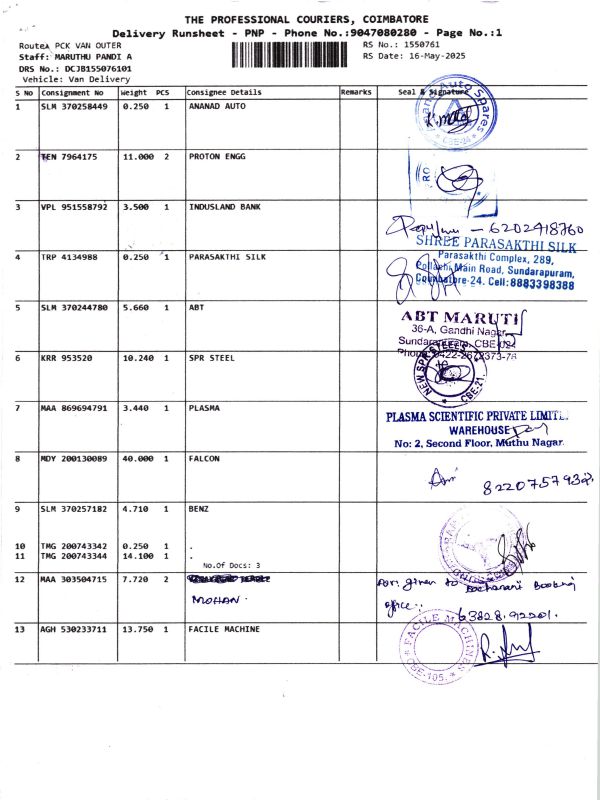 THE PROFESSIONAL COURIERS, COIMBATORE
Delivery Runsheet - PNP - Phone No.:9047080280 - Page No.:1
Route: PCK VAN OUTER
RS No.: 1550761
Staff: MARUTHU PANDI A
RS Date: 16-May-2025
DRS No.: DCJB155076101
Vehicle: Van Delivery
S No Consignment No Weight PCS Consignee Details Remarks Seal & Signature
1 SLM 370258449 0.250 1 ANANAD AUTO
Auto Spares
CBE-24
2 TEN 7964175 11.000 2 PROTON ENGG
PRO
3 VPL 951558792 3.500 1 INDUSLAND BANK
6202418760
4 TRP 4134988 0.250 1 PARASAKTHI SILK
SHREE PARASAKTHI SILK
Parasakthi Complex, 289,
Pollachi Main Road, Sundarapuram,
Coimbatore-24. Cell:8883398388
5 SLM 370244780 5.660 1 ABT
ABT MARUTI
36-A, Gandhi Nagar,
Sundarapuram, CBE-024
Phone: 0422-2672373-76
6 KRR 953520 10.240 1 SPR STEEL
NEW SPR STEELS
CBE-21.
7 MAA 869694791 3.440 1 PLASMA
PLASMA SCIENTIFIC PRIVATE LIMITE
WAREHOUSE
No: 2, Second Floor, Muthu Nagar
8 MDY 200130089 40.000 1 FALCON
8220757932
9 SLM 370257182 4.710 1 BENZ
10 TMG 200743342 0.250 1 .
11 TMG 200743344 14.100 1 .
No.Of Docs: 3
12 MAA 303504715 7.720 2
MOHAN.
given to
Booking
office
63828.92201.
13 AGH 530233711 13.750 1 FACILE MACHINE
FACILE MACHINES
CBE-105.